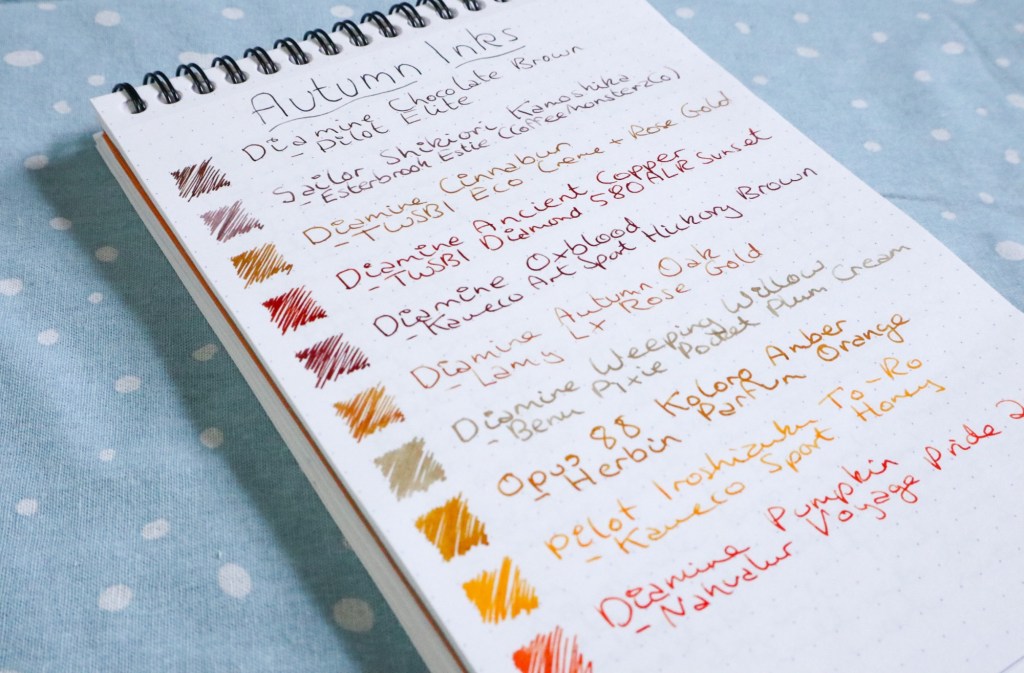 Autumn Inks
Diamine Chocolate Brown
- Pilot Elite
Sailor Shikiori Kamoshika
- Esterbrook Estie (Coffeemonsterzco)
Diamine Cinnabur
- TWSBI Eco Creme + Rose Gold
Diamine Ancient Copper
- TWSBI Diamond 580 ALR Sunset
Diamine Oxblood
- Kaweco Art Sport Hickory Brown
Diamine Autumn Oak
- Lamy Lx Rose Gold
Diamine Weeping Willow
- Benu Pixie Pocket Plum Cream
Opus 88 Koloro Amber
- Herbin Parfum Orange
Pilot Iroshizuku To-Ro
- Kaweco Sport Honey
Diamine Pumpkin
- Nahvalur Voyage Pride 2